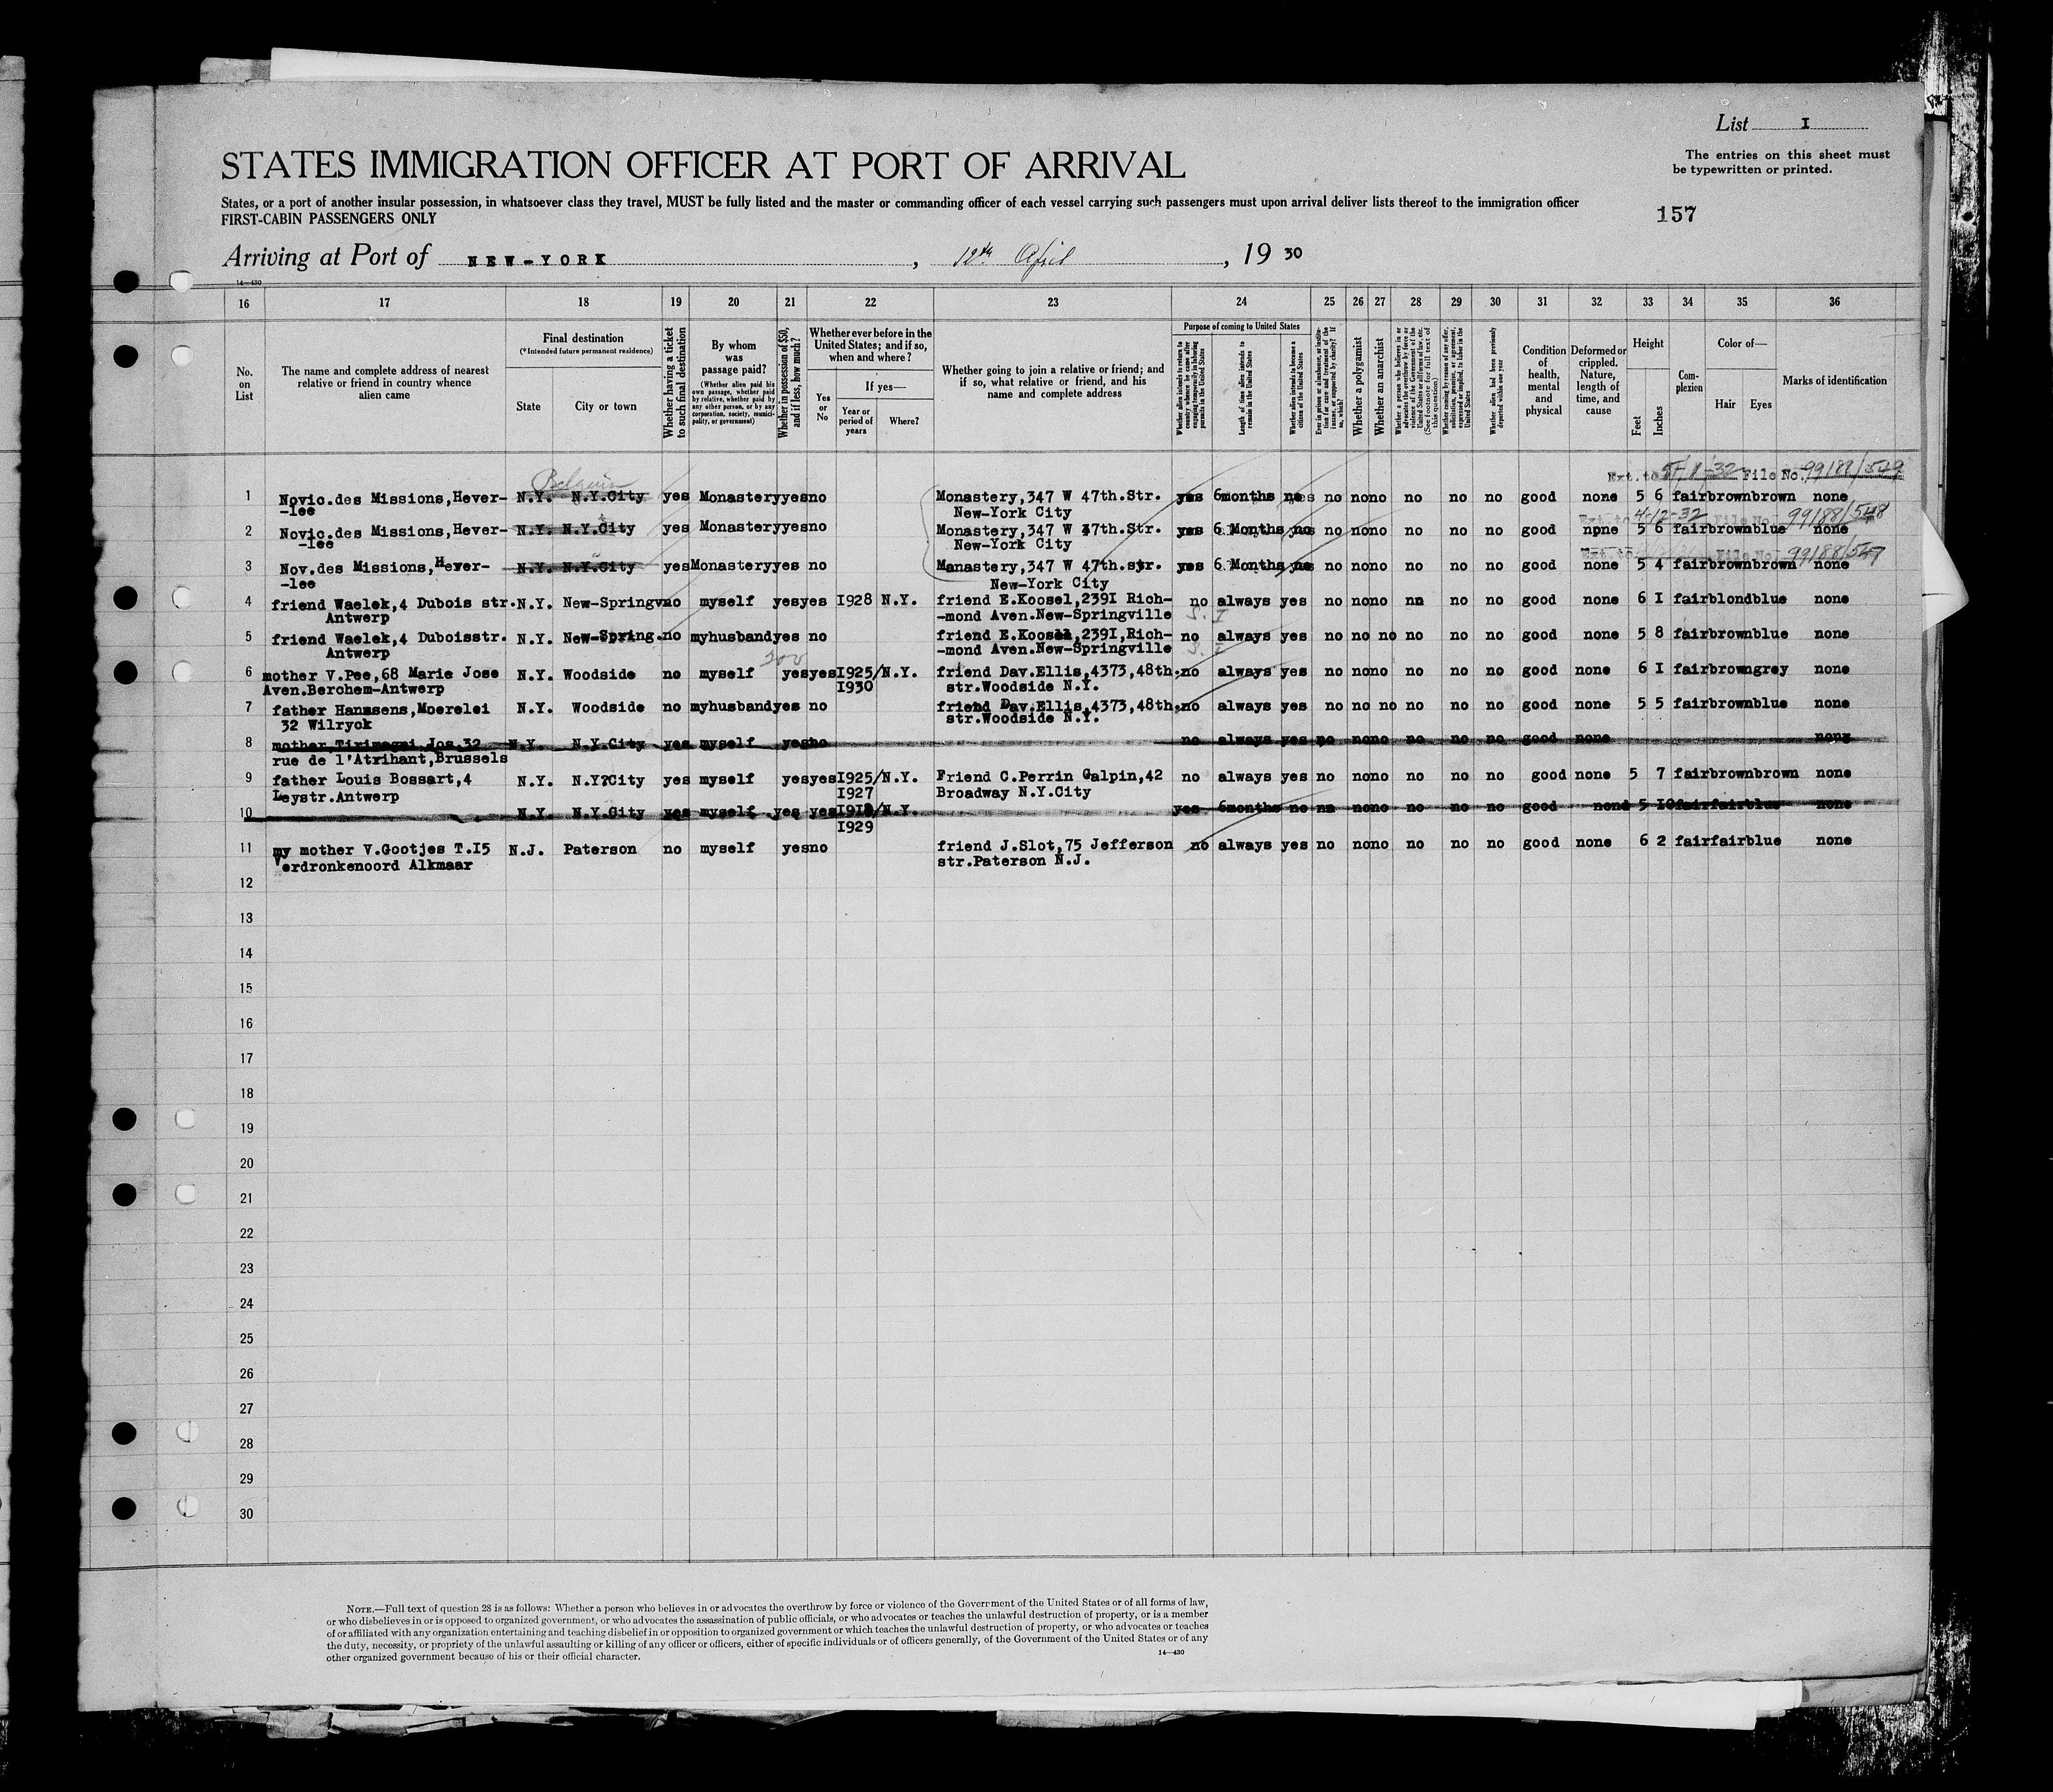 List I
STATES IMMIGRATION OFFICER AT PORT OF ARRIVAL
The entries on this sheet must
be typewritten or printed.
States, or a port of another insular possession, in whatsoever class they travel, MUST be fully listed and the master or commanding officer of each vessel carrying such passengers must upon arrival deliver lists thereof to the immigration officer
FIRST-CABIN PASSENGERS ONLY
157
Arriving at Port of NEW-YORK, 12th April, 19 30
14—430
16 17 18 19 20 21 22 23 24 25 26 27 28 29 30 31 32 33 34 35 36
No. on List
The name and complete address of nearest relative or friend in country whence alien came
Final destination
(*Intended future permanent residence)
State
City or town
Whether having a ticket to such final destination
By whom was passage paid?
(Whether alien paid his own passage, whether paid by relative, whether paid by any other person, or by any corporation, society, municipality, or government)
Whether in possession of $50, and if less, how much?
Whether ever before in the United States; and if so, when and where?
Yes or No
If yes—
Year or period of years
Where?
Whether going to join a relative or friend; and if so, what relative or friend, and his name and complete address
Purpose of coming to United States
Whether alien intends to return to country whence he came after engaging temporarily in laboring pursuits in the United States
Length of time alien intends to remain in the United States
Whether alien intends to become a citizen of the United States
Ever in prison or almshouse, or institution for care and treatment of the insane, or supported by charity? If so, which?
Whether a polygamist
Whether an anarchist
Whether a person who believes in or advocates the overthrow by force or violence of the Government of the United States or all forms of law, etc. (See footnote for full text of this question)
Whether coming by reason of any offer, solicitation, promise, or agreement, expressed or implied, to labor in the United States
Whether alien had been previously deported within one year
Condition of health, mental and physical
Deformed or crippled. Nature, length of time, and cause
Height
Feet
Inches
Complexion
Color of—
Hair
Eyes
Marks of identification
Belgium
Ext. to 5/1/-32 File No. 99188/549
1 Novic.des Missions,Hever- N.Y. N.Y.City yes Monastery yes no Monastery,347 W 47th.Str. yes 6months no yes no no no no no no good none 5 6 fair brown brown none
-lee New-York City
Ext. to 4-12-32 File No. 99188/548
2 Novic.des Missions,Hever- N.Y. N.Y.City yes Monastery yes no Monastery,347 W 47th.Str. yes 6 Months no no no no no no no good none 5 6 fair brown blue none
-lee New-York City
Ext. to File No. 99188/547
3 Nov.des Missions,Hever- N.Y. N.Y.City yes Monastery yes no Manastery,347 W 47th.str. yes 6 Months no no no no no no no good none 5 4 fair brown brown none
-lee New-York City
4 friend Waelek,4 Dubois str. N.Y. New-Springv no myself yes yes I928 N.Y. friend E.Koosel,239I Rich- no always yes no no no nn no no good none 6 I fair blond blue none
Antwerp -mond Aven.New-Springville S. I
5 friend Waelek,4 Duboisstr. N.Y. New-Spring. no myhusband yes no friend E.Koosel,239I,Rich- no always yes no no no no no no good none 5 8 fair brown blue none
Antwerp -mond Aven.New-Springville S. I
500
6 mother V.Pee,68 Marie Jose N.Y. Woodside no myself yes yes I925/ N.Y. friend Dav.Ellis,4373,48th. no always yes no no no no no no good none 6 I fair brown grey none
Aven.Berchem-Antwerp I930 str.Woodside N.Y.
7 father Hanssens,Moerelei N.Y. Woodside no myhusband yes no friend Dav.Ellis,4373,48th. no always yes no no no no no no good none 5 5 fair brown blue none
32 Wilryck str.Woodside N.Y.
8 mother Jos 32 N.Y. N.Y.City yes myself yes no no always yes no no no no no no good none none
rue de l'Atrihant,Brussels
9 father Louis Bossart,4 N.Y. N.Y?City yes myself yes yes I925/ N.Y. Friend C.Perrin Galpin,42 no always yes no no no no no no good none 5 7 fair brown brown none
Leystr.Antwerp I927 Broadway N.Y.City
10 N.Y. N.Y.City yes myself yes yes N.Y. yes 6months no no no no no no no good none 5 I0 fair fair blue none
I929
11 my mother V.Gootjes T.I5 N.J. Paterson no myself yes no friend J.Slot,75 Jefferson no always yes no no no no no no good none 6 2 fair fair blue none
Verdronkenoord Alkmaar str.Paterson N.J.
12
13
14
15
16
17
18
19
20
21
22
23
24
25
26
27
28
29
30
NOTE.—Full text of question 28 is as follows: Whether a person who believes in or advocates the overthrow by force or violence of the Government of the United States or of all forms of law,
or who disbelieves in or is opposed to organized government, or who advocates the assassination of public officials, or who advocates or teaches the unlawful destruction of property, or is a member
of or affiliated with any organization entertaining and teaching disbelief in or opposition to organized government or which teaches the unlawful destruction of property, or who advocates or teaches
the duty, necessity, or propriety of the unlawful assaulting or killing of any officer or officers, either of specific individuals or of officers generally, of the Government of the United States or of any
other organized government because of his or their official character.
14—430